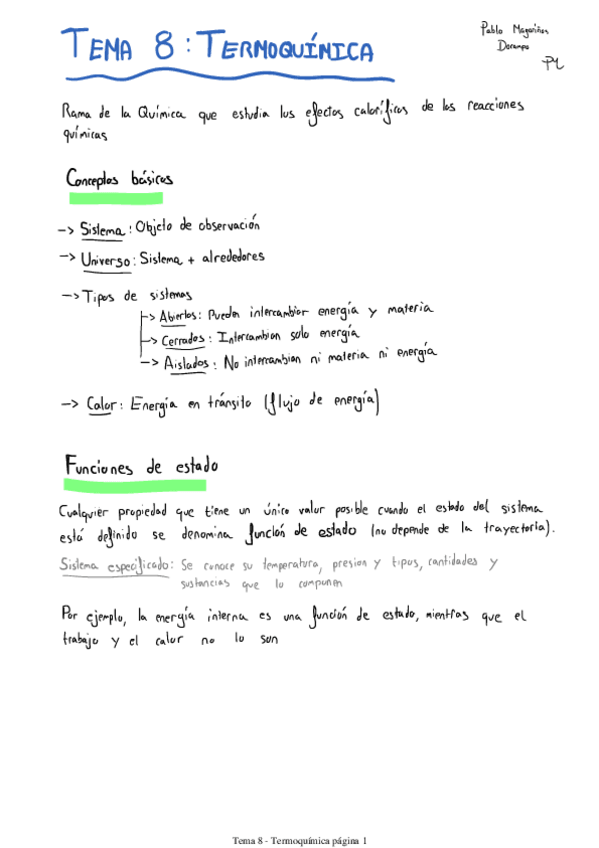 TEMA 8: TERMOQUÍMICA
Pablo Magariños
PL
Rama de la Química que estudia los efectos caloríficos de las reacciones
químicas
Conceptos básicos
-> Sistema: Objeto de observación
-> Universo: Sistema + alrededores
-> Tipos de sistemas
-> Abiertos: Pueden intercambiar energía y materia
-> Cerrados: Intercambian solo energía
-> Aislados: No intercambian ni materia ni energía
-> Calor: Energía en tránsito (flujo de energía)
Funciones de estado
Cualquier propiedad que tiene un único valor posible cuando el estado del sistema
está definido se denomina función de estado (no depende de la trayectoria).
Sistema especificado: Se conoce su temperatura, presion y tipos, cantidades y
sustancias que lo componen
Por ejemplo, la energía interna es una función de estado, mientras que el
trabajo y el calor no lo son
Tema 8 - Termoquímica página 1